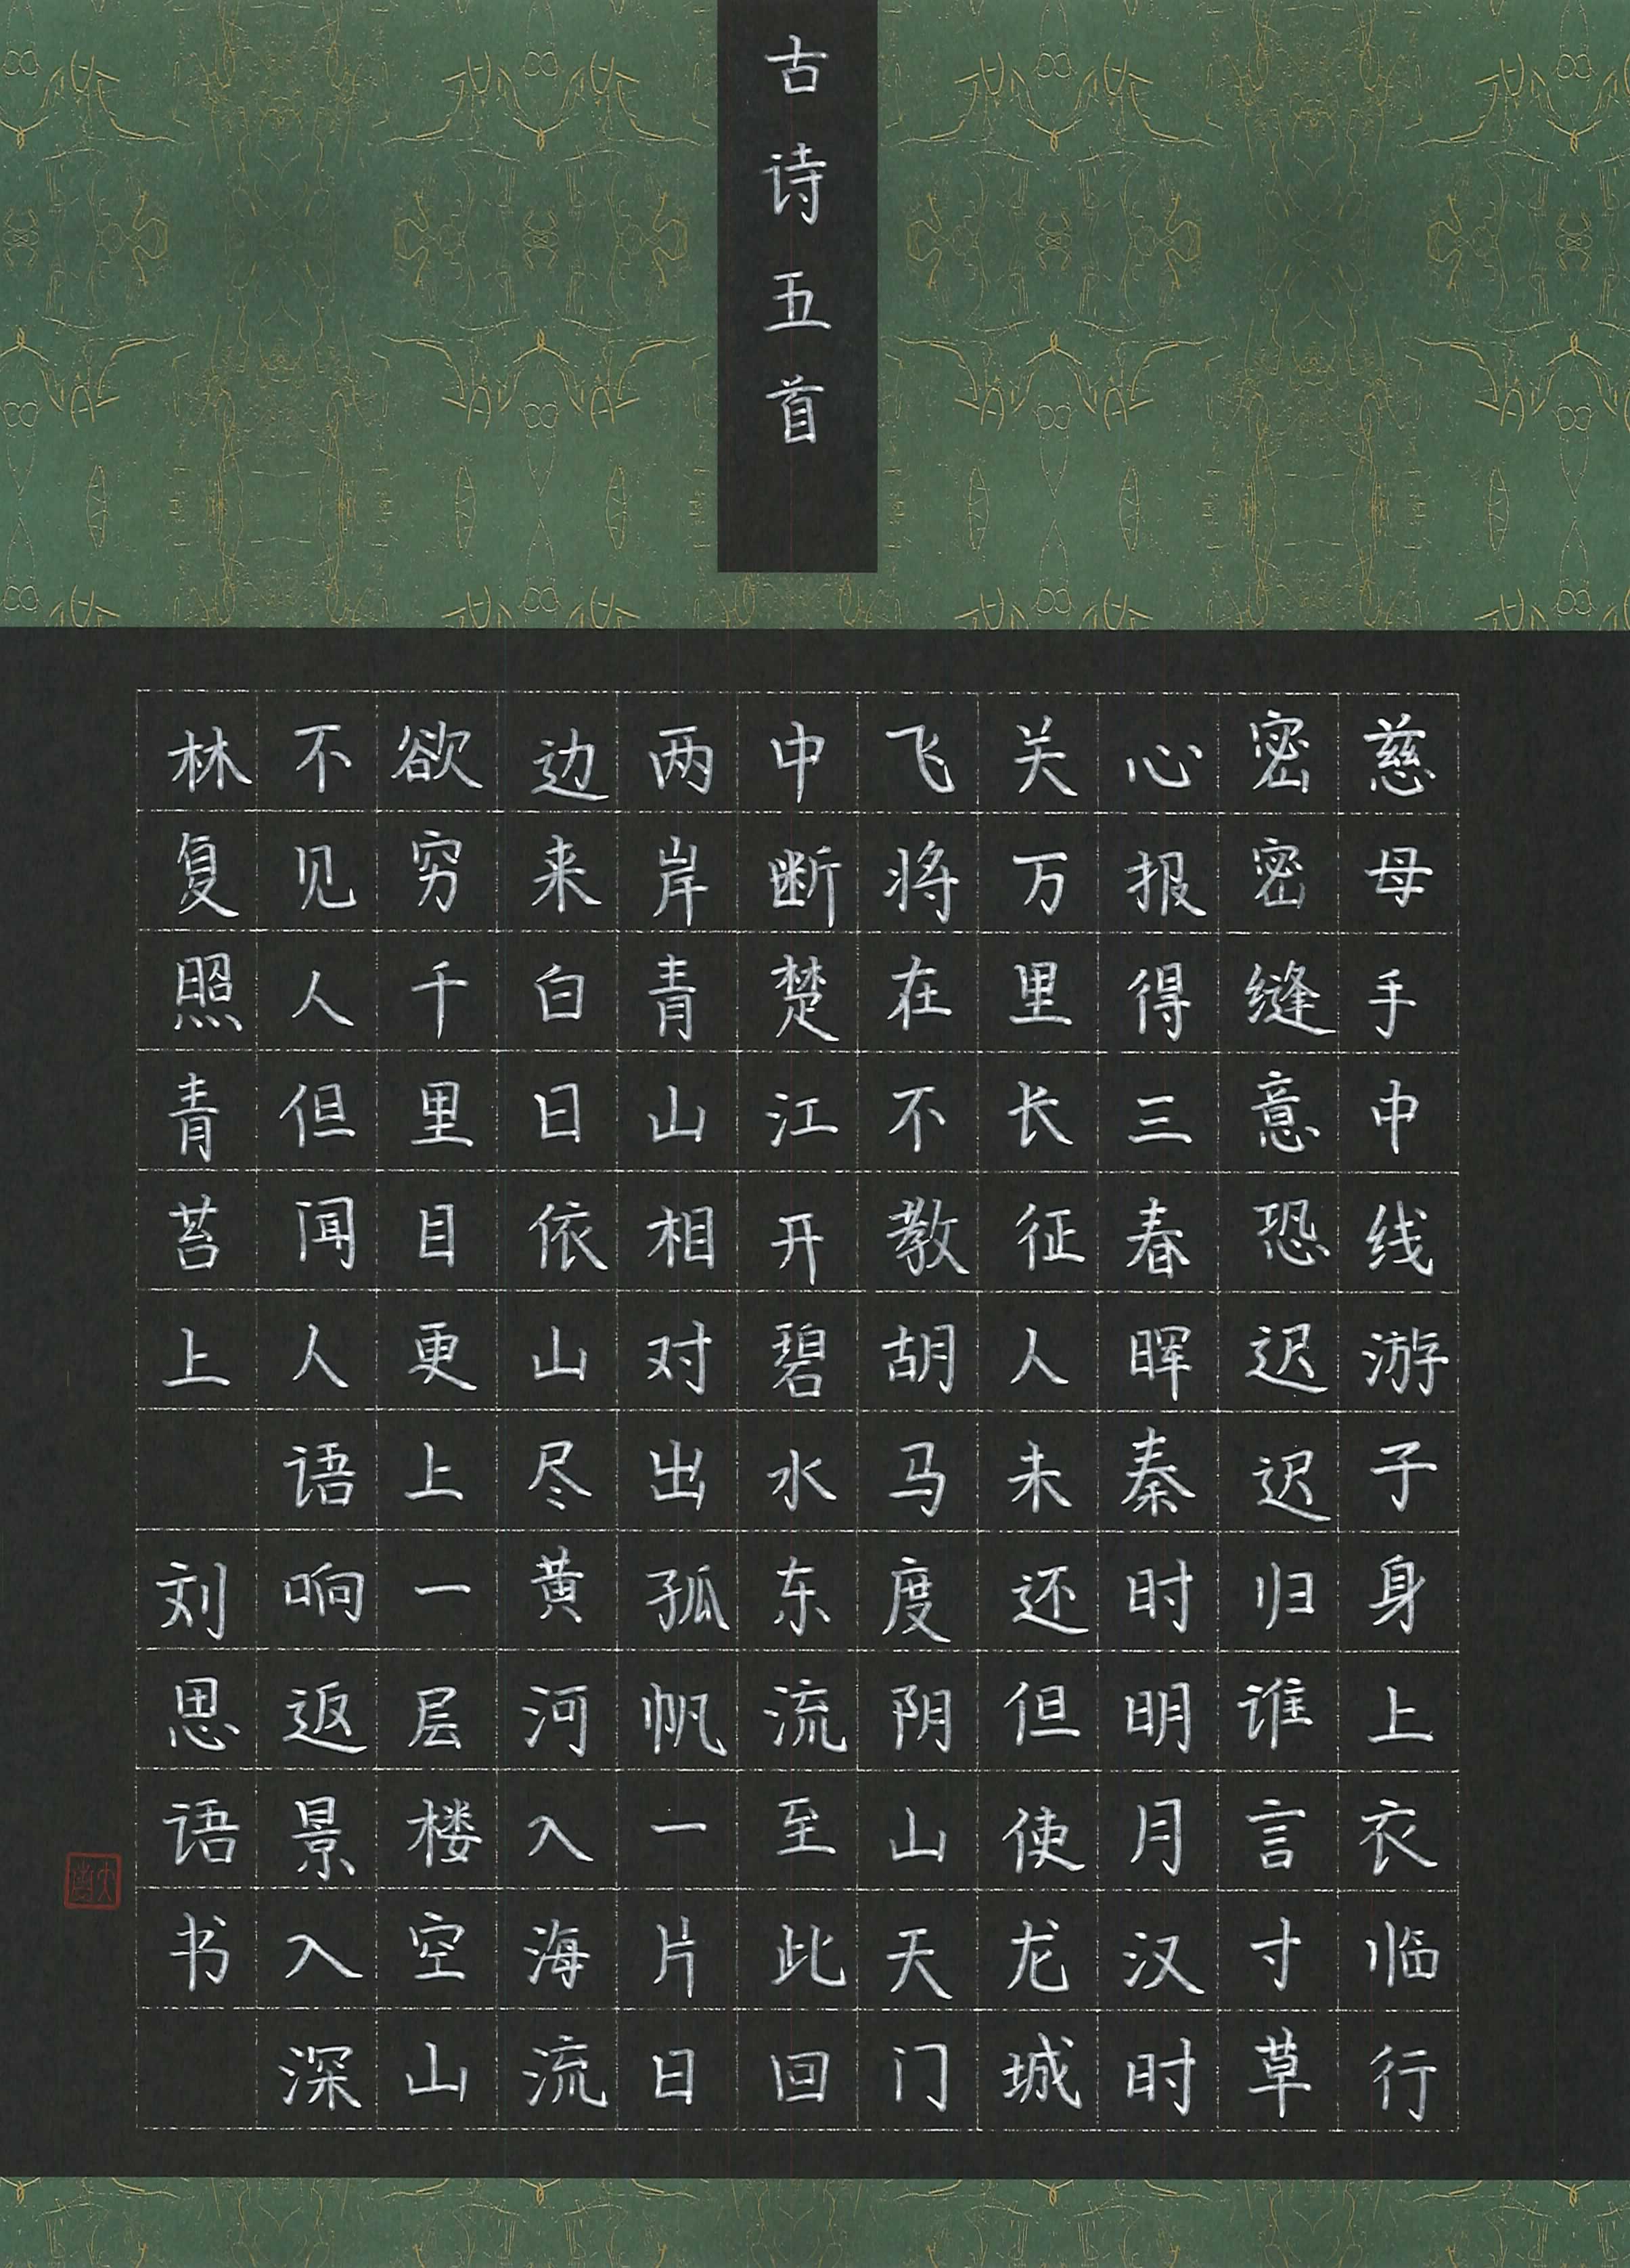 古诗五首
慈母手中线游子身上衣临行
密密缝意恐迟迟归谁言寸草
心报得三春晖秦时明月汉时
关万里长征人未还但使龙城
飞将在不教胡马度阴山天门
中断楚江开碧水东流至此回
两岸青山相对出孤帆一片日
边来白日依山尽黄河入海流
欲穷千里目更上一层楼空山
不见人但闻人语响返景入深
林复照青苔上 刘思语书